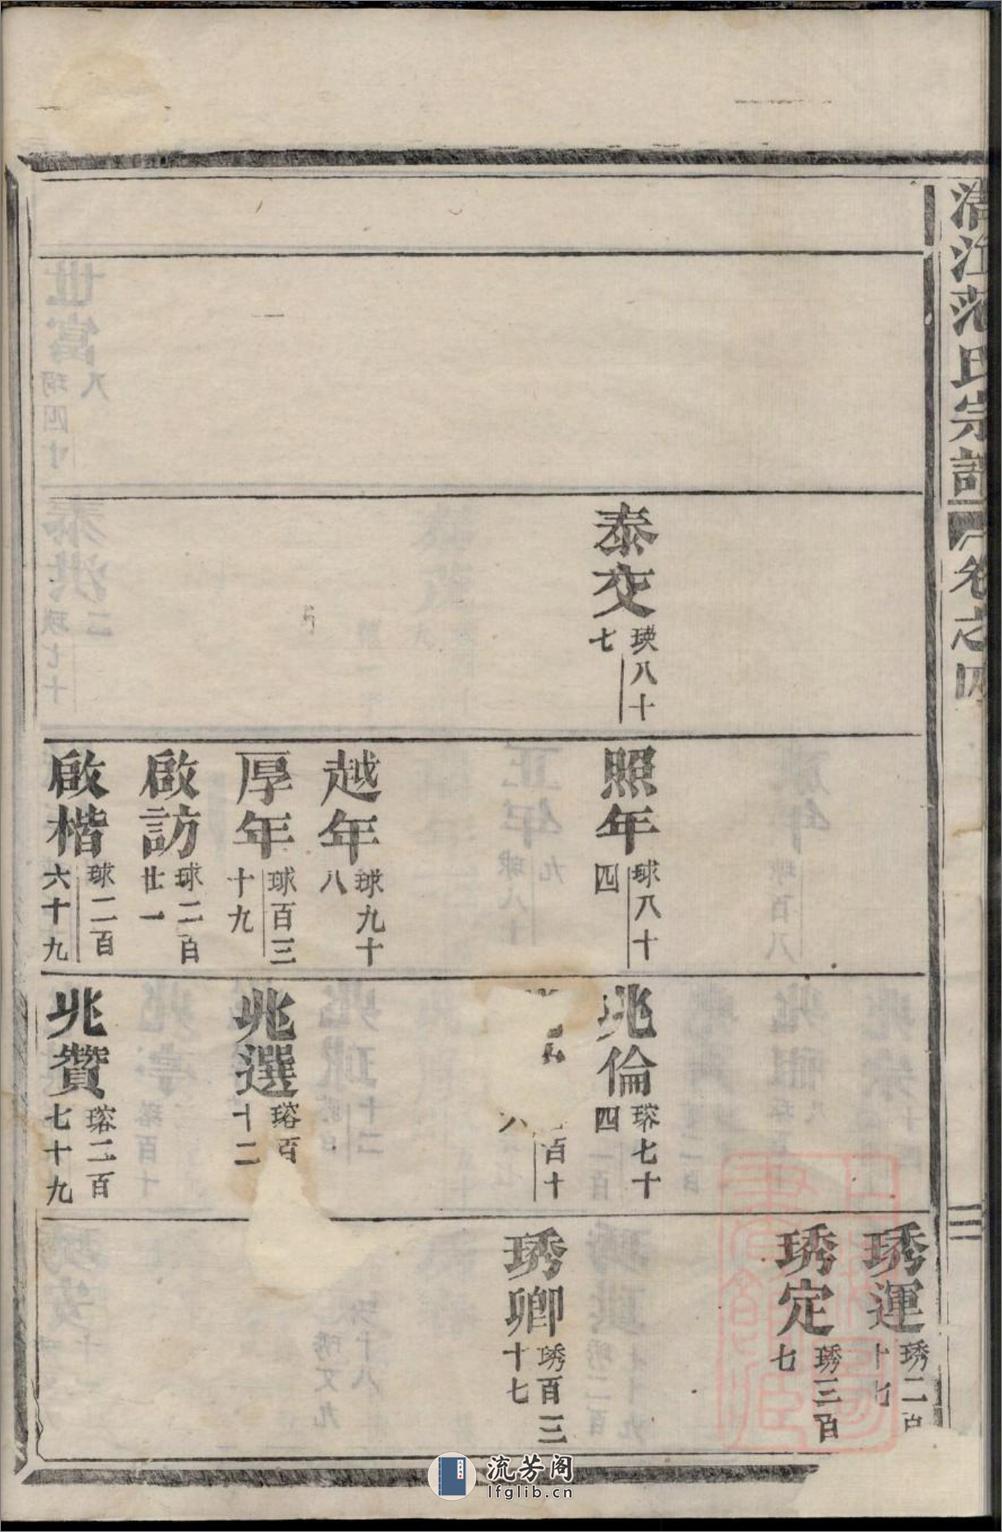 清江范氏宗譜
卷之四
三
泰交
瑛八十
七
照年
球八十
四
越年
球九十
八
厚年
球百三
十九
啟訪
球二百
廿一
啟楷
球二百
六十九
兆倫
瑢七十
四
百十
八
兆選
瑢百
十二
兆贊
瑢二百
七十九
琇運
琇二百
十七
琇定
琇三百
七
琇卿
琇百三
十七
流芳阁
lfglib.cn